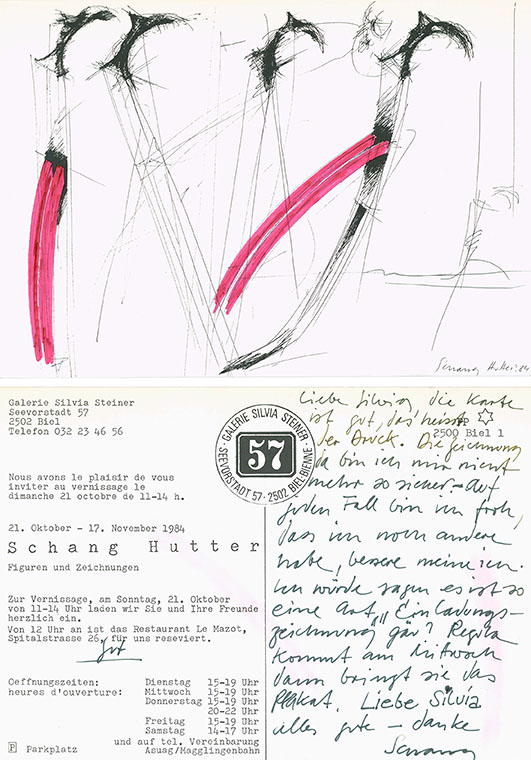 Schang Hutter 84
Galerie Silvia Steiner
Seevorstadt 57
2502 Biel
Telefon 032 23 46 56
GALERIE SILVIA STEINER
57
SEEVORSTADT 57 · 2502 BIEL BIENNE
Nous avons le plaisir de vous
inviter au vernissage le
dimanche 21 octobre de 11-14 h.
21. Oktober - 17. November 1984
Schang Hutter
Figuren und Zeichnungen
Zur Vernissage, am Sonntag, 21. Oktober
von 11-14 Uhr laden wir Sie und Ihre Freunde
herzlich ein.
Von 12 Uhr an ist das Restaurant Le Mazot,
Spitalstrasse 26, für uns reserviert.
gut
Oeffnungszeiten: Dienstag 15-19 Uhr
heures d'ouverture: Mittwoch 15-19 Uhr
Donnerstag 15-19 Uhr
20-22 Uhr
Freitag 15-19 Uhr
Samstag 14-17 Uhr
und auf tel. Vereinbarung
P Parkplatz Asuag/Magglingenbahn
PP
2500 Biel 1
Liebe Silvia die Karte
ist gut, das heisst
der Druck. Die Zeichnung
da bin ich mir nicht
mehr so sicher - auf
jeden Fall bin ich froh,
dass ich noch andere
habe, bessere meine ich.
Ich würde sagen es ist so
eine Art "Einladungs-
zeichnung gäu? Regula
kommt am Mittwoch
dann bringt sie das
Plakat. Liebe Silvia
alles gute - danke
Schang